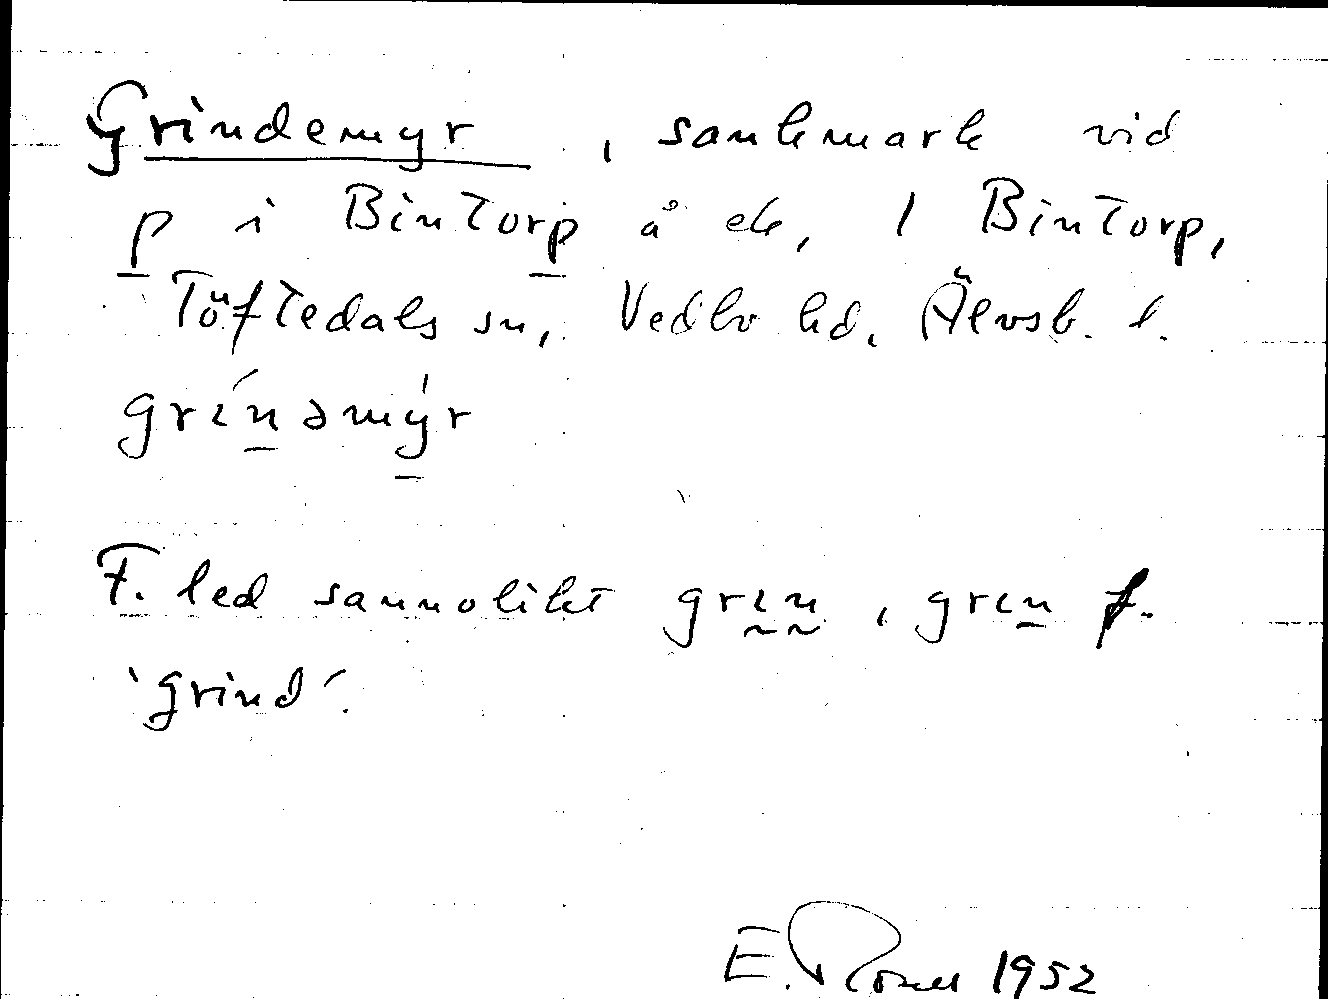 Grindemyr, sankmark vid
p i Bintorp å ek, 1 Bintorp,
Töftedals sn, Vedbo hd. Älvsb. l.
grı́nəmy̍r
F. led sannolikt grın, grın f.
'grind'.
E. 1952